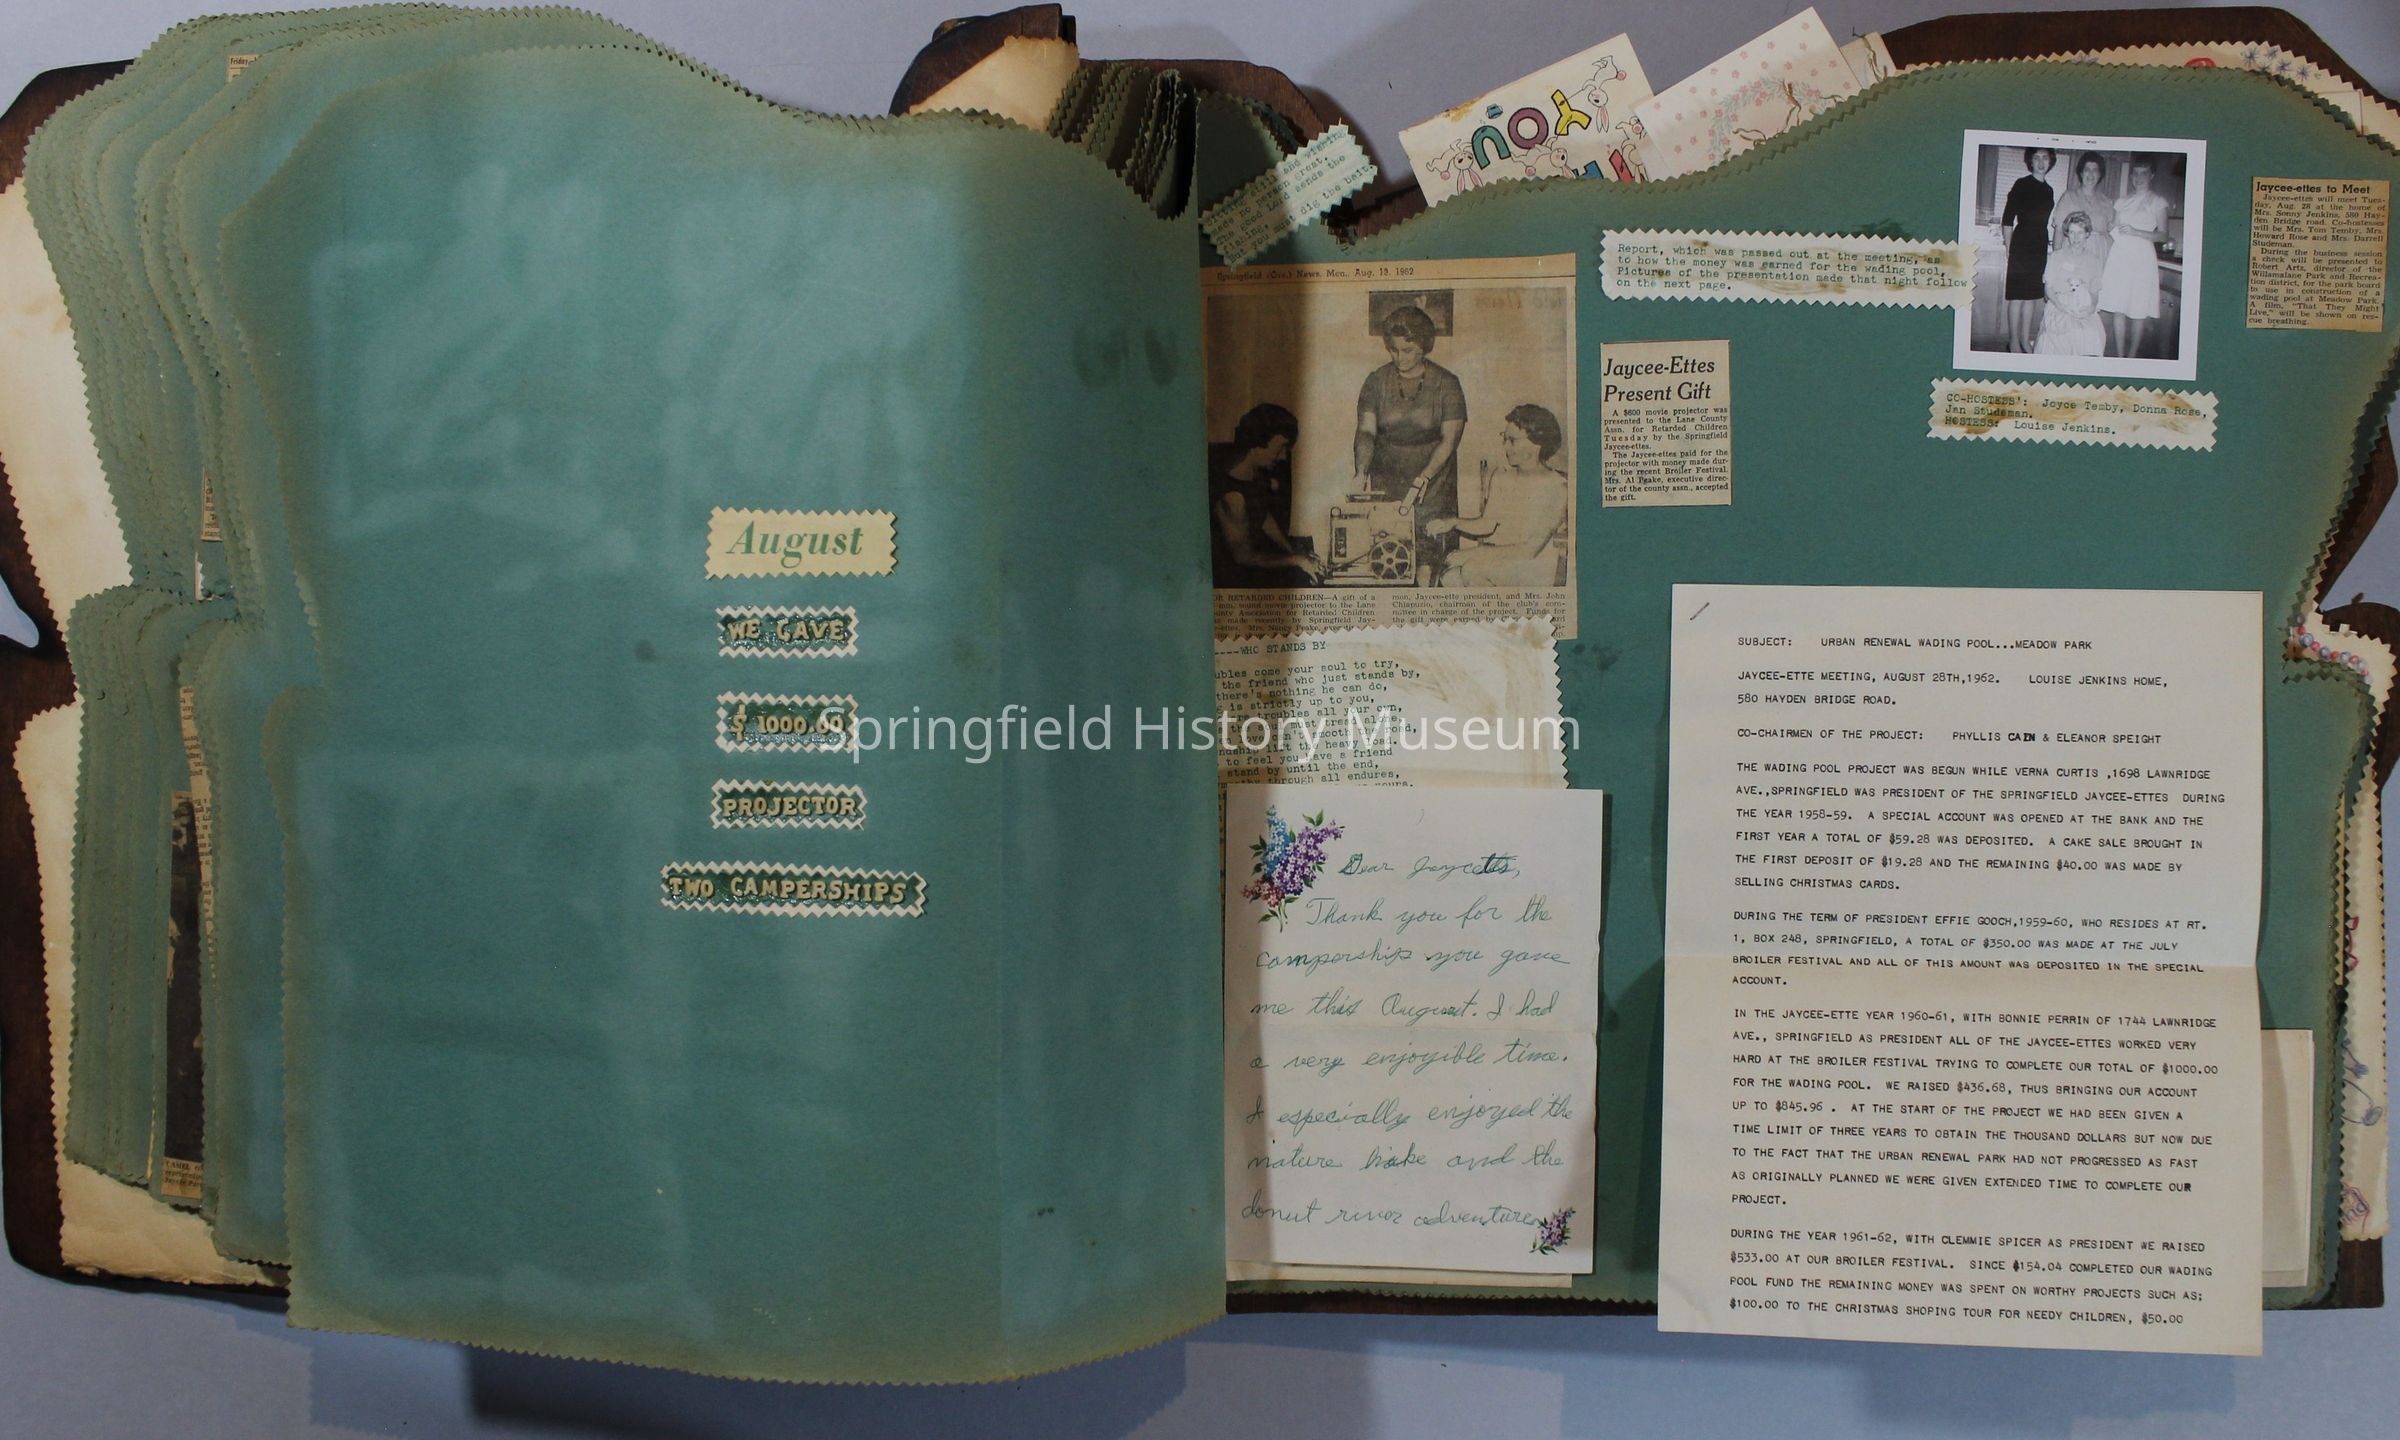 August
WE GAVE
$ 1000.00
PROJECTOR
TWO CAMPERSHIPS
Springfield History Museum
Friday
made no person great.
The good Lord sends the
fishing,
But you must dig the bait.
YOU
Springfield (Ore.) News, Mon., Aug. 13, 1962
OR RETARDED CHILDREN—A gift of a
mm. sound movie projector to the Lane
unty Association for Retarded Children
s made recently by Springfield Jay-
-ettes. Mrs. Nancy Peake,
mon, Jaycee-ette president, and Mrs. John
Chiapuzio, chairman of the club's com-
mittee in charge of the project. Funds for
the gift were earned by
----WHO STANDS BY
ubles come your soul to try,
the friend who just stands by,
there's nothing he can do,
is strictly up to you,
troubles all your own,
must tread alone,
love can't smooth the road,
ndship lift the heavy load.
to feel you have a friend
stand by until the end,
through all endures,
yours.
Dear Jaycetts,
Thank you for the
campership you gave
me this August. I had
a very enjoyible time.
I especially enjoyed the
nature hike and the
donut river adventure
Report, which was passed out at the meeting, as
to how the money was earned for the wading pool.
Pictures of the presentation made that night follow
on the next page.
Jaycee-Ettes
Present Gift
A $600 movie projector was
presented to the Lane County
Assn. for Retarded Children
Tuesday by the Springfield
Jaycee-ettes.
The Jaycee-ettes paid for the
projector with money made dur-
ing the recent Broiler Festival.
Mrs. Al Peake, executive direc-
tor of the county assn., accepted
the gift.
CO-HOSTESS': Joyce Temby, Donna Rose,
Jan Studeman.
HOSTESS: Louise Jenkins.
Jaycee-ettes to Meet
Jaycee-ettes will meet Tues-
day, Aug. 28 at the home of
Mrs. Sonny Jenkins, 580 Hay-
den Bridge road. Co-hostesses
will be Mrs. Tom Temby, Mrs.
Howard Rose and Mrs. Darrell
Studeman.
During the business session
a check will be presented to
Robert Artz, director of the
Willamalane Park and Recrea-
tion district, for the park board
to use in construction of a
wading pool at Meadow Park.
A film, "That They Might
Live," will be shown on res-
cue breathing.
SUBJECT: URBAN RENEWAL WADING POOL...MEADOW PARK
JAYCEE-ETTE MEETING, AUGUST 28TH,1962. LOUISE JENKINS HOME,
580 HAYDEN BRIDGE ROAD.
CO-CHAIRMEN OF THE PROJECT: PHYLLIS CAIN & ELEANOR SPEIGHT
THE WADING POOL PROJECT WAS BEGUN WHILE VERNA CURTIS ,1698 LAWNRIDGE
AVE.,SPRINGFIELD WAS PRESIDENT OF THE SPRINGFIELD JAYCEE-ETTES DURING
THE YEAR 1958-59. A SPECIAL ACCOUNT WAS OPENED AT THE BANK AND THE
FIRST YEAR A TOTAL OF $59.28 WAS DEPOSITED. A CAKE SALE BROUGHT IN
THE FIRST DEPOSIT OF $19.28 AND THE REMAINING $40.00 WAS MADE BY
SELLING CHRISTMAS CARDS.
DURING THE TERM OF PRESIDENT EFFIE GOOCH,1959-60, WHO RESIDES AT RT.
1, BOX 248, SPRINGFIELD, A TOTAL OF $350.00 WAS MADE AT THE JULY
BROILER FESTIVAL AND ALL OF THIS AMOUNT WAS DEPOSITED IN THE SPECIAL
ACCOUNT.
IN THE JAYCEE-ETTE YEAR 1960-61, WITH BONNIE PERRIN OF 1744 LAWNRIDGE
AVE., SPRINGFIELD AS PRESIDENT ALL OF THE JAYCEE-ETTES WORKED VERY
HARD AT THE BROILER FESTIVAL TRYING TO COMPLETE OUR TOTAL OF $1000.00
FOR THE WADING POOL. WE RAISED $436.68, THUS BRINGING OUR ACCOUNT
UP TO $845.96 . AT THE START OF THE PROJECT WE HAD BEEN GIVEN A
TIME LIMIT OF THREE YEARS TO OBTAIN THE THOUSAND DOLLARS BUT NOW DUE
TO THE FACT THAT THE URBAN RENEWAL PARK HAD NOT PROGRESSED AS FAST
AS ORIGINALLY PLANNED WE WERE GIVEN EXTENDED TIME TO COMPLETE OUR
PROJECT.
DURING THE YEAR 1961-62, WITH CLEMMIE SPICER AS PRESIDENT WE RAISED
$533.00 AT OUR BROILER FESTIVAL. SINCE $154.04 COMPLETED OUR WADING
POOL FUND THE REMAINING MONEY WAS SPENT ON WORTHY PROJECTS SUCH AS;
$100.00 TO THE CHRISTMAS SHOPING TOUR FOR NEEDY CHILDREN, $50.00